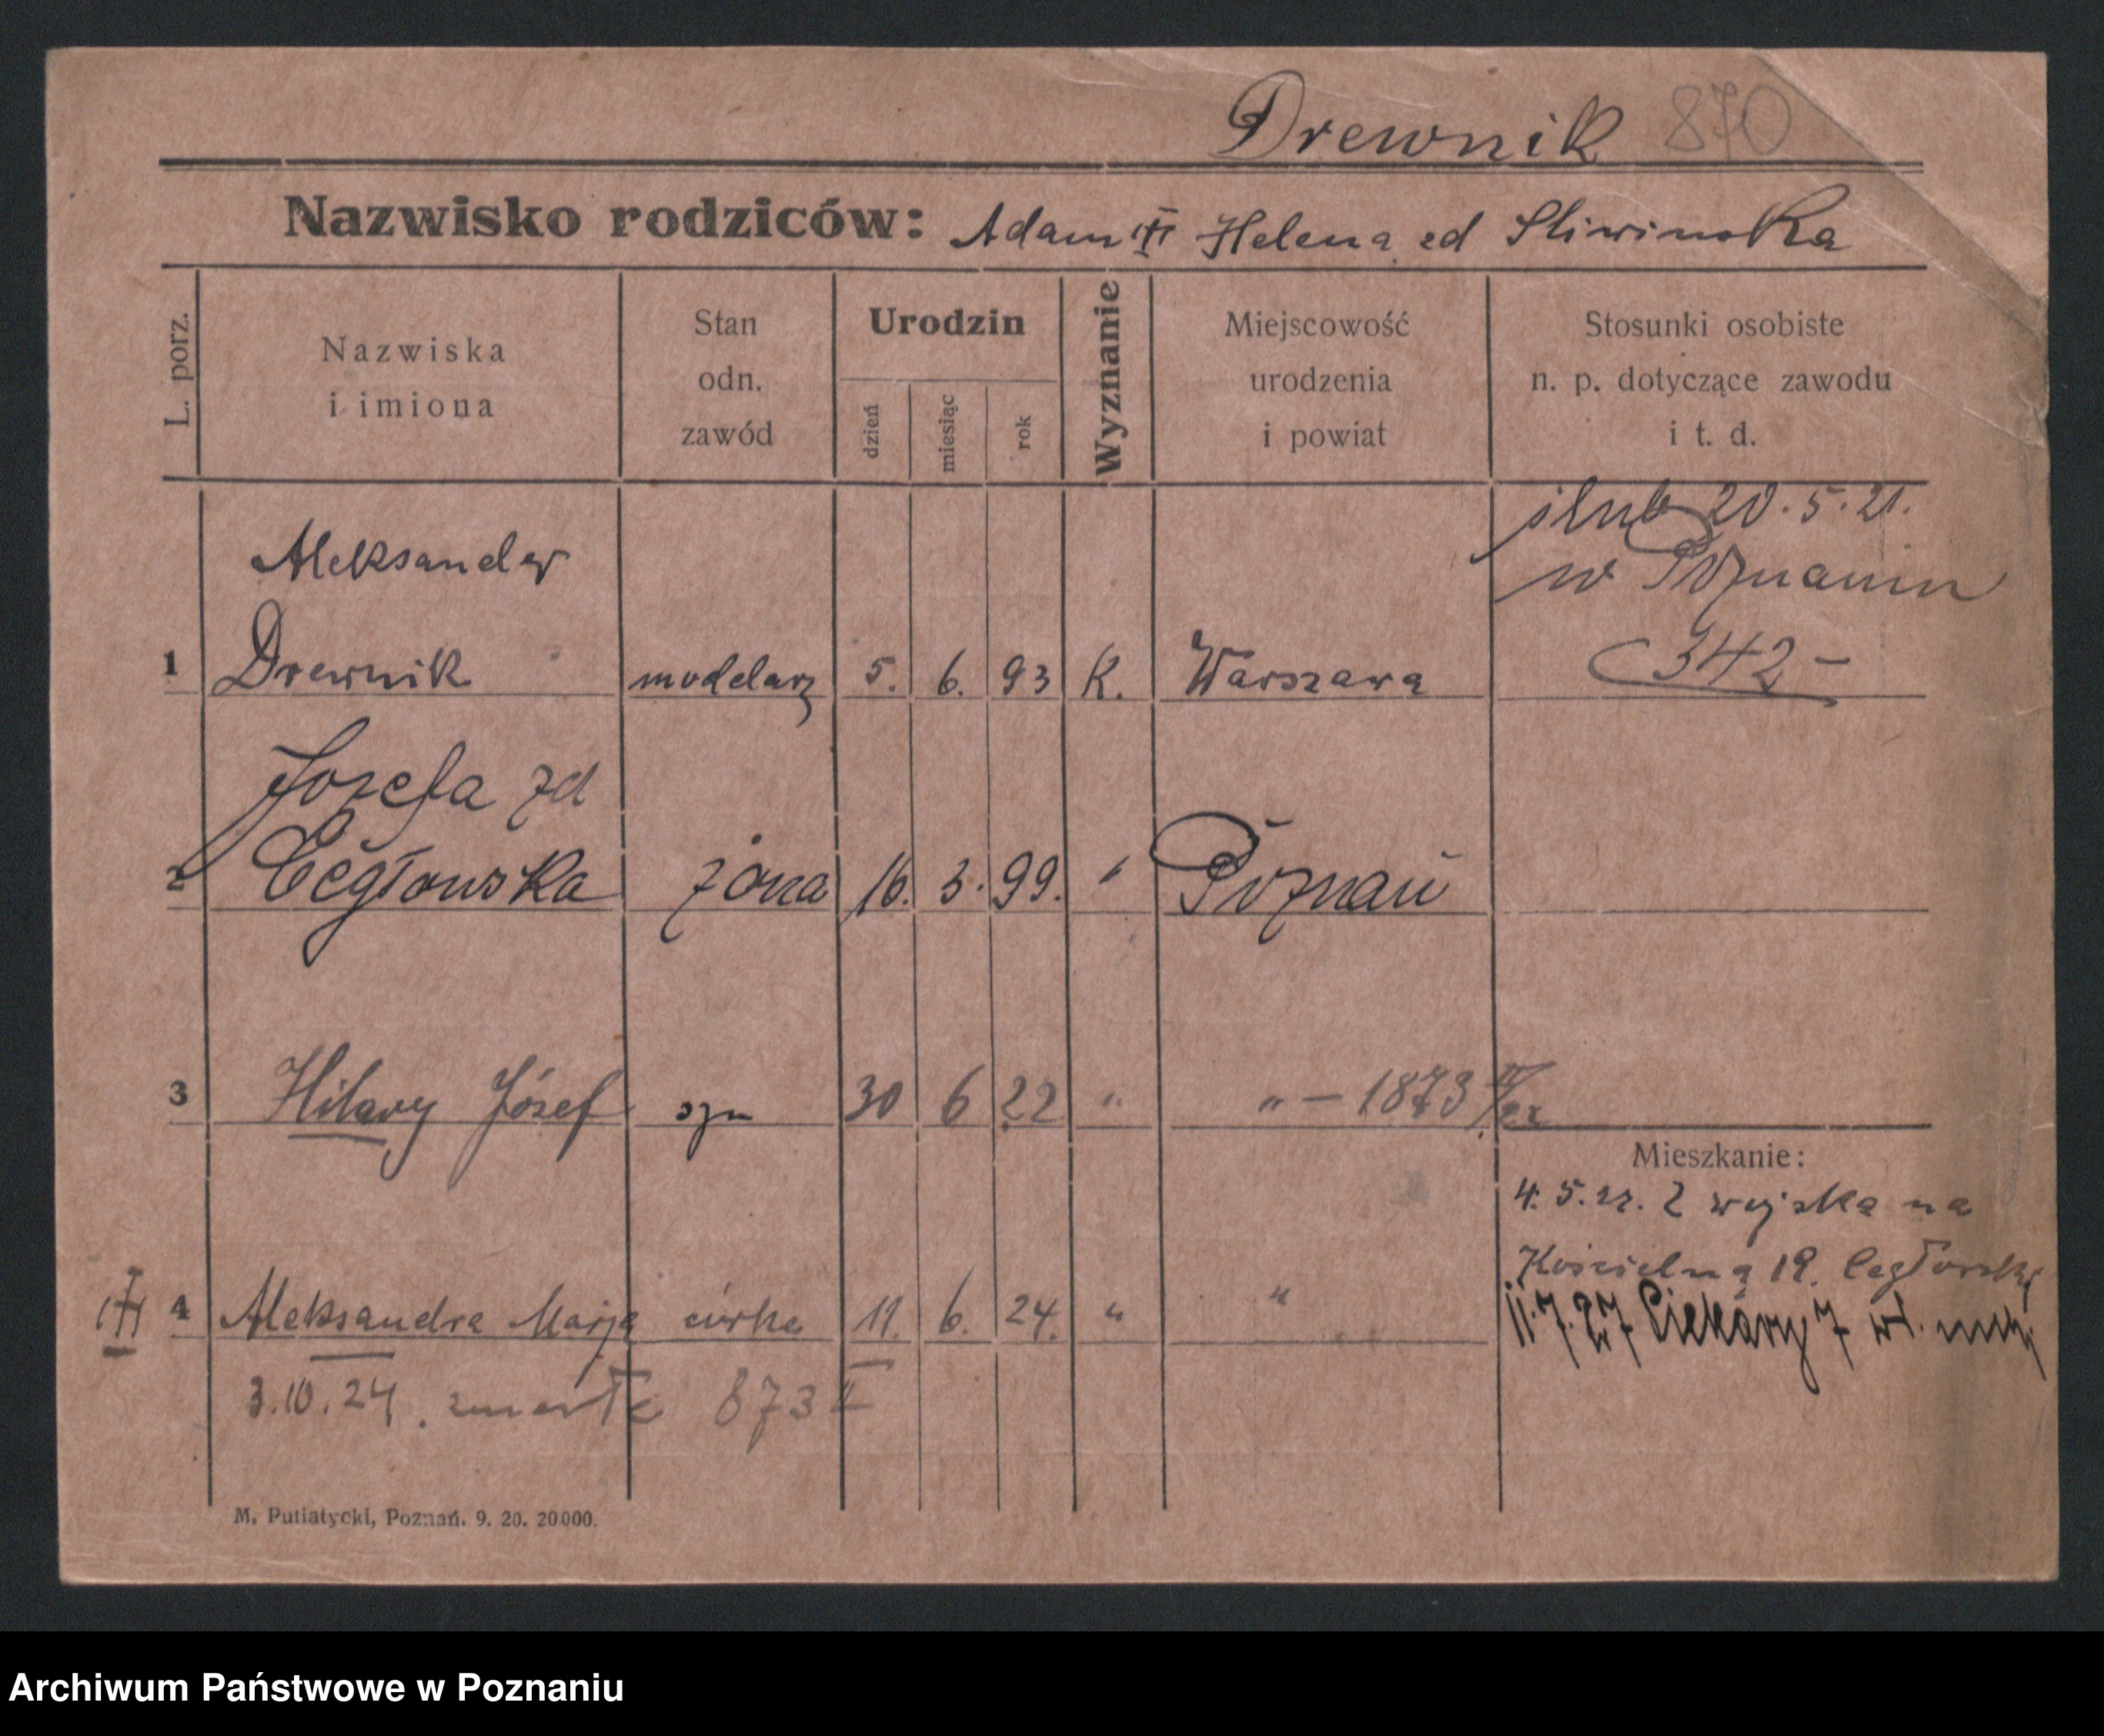 Drewnik 870
Nazwisko rodziców: Adam Helena zd Sliwinska
L. porz.
Nazwiska
i imiona
Stan
odn.
zawód
Urodzin
dzień
miesiąc
rok
Wyznanie
Miejscowość
urodzenia
i powiat
Stosunki osobiste
n. p. dotyczące zawodu
i t. d.
ślub 20.5.21.
w Poznaniu
342-
Aleksander
1 Drewnik modelarz 5. 6. 93 K. Warszawa
Jozefa zd
2 Cegłowska żona 16. 3. 99. " Poznań
3 Hilary Józef syn 30 6 22 " " — 1873
Mieszkanie:
4. 5. 22. Z wojska na
Kościelną 19. Cegłorski
4 Aleksandra Marja córka 11. 6. 24. " "
11.7.27 Piekary 7
3.10.24. zmarła 873 II
M. Putiatycki, Poznań. 9. 20. 20000.
Archiwum Państwowe w Poznaniu